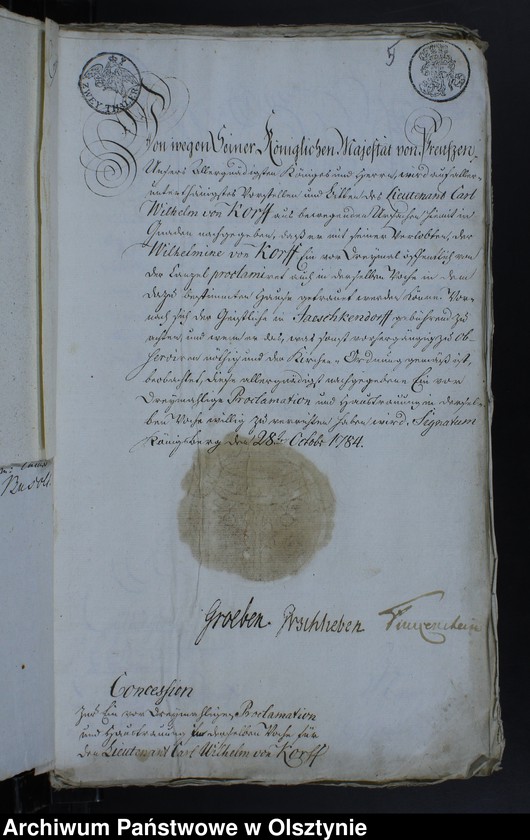 ZWEY THALER
5
Von wegen Seiner Königlichen Majestät von Preußen,
Unsers Allergnädigsten Königes und Herrn, wird auf aller-
unterthänigstes Vorstellen und Bitten des Lieutenants Carl
Wilhelm von Korff aus bewegenden Ursachen hiemit in
Gnaden nachgegeben, daß er mit seiner Verlobten, der
Wilhelmine von Korff Ein vor Dreymal öffentlich von
der Canzel proclamiret auch in derselben Woche in dem
dazu bestimmten Hause getrauet werden könne. Wor-
nach sich der Geistliche in Jaeschkendorff gebührend zu
achten, und wenn er das, was sonst vorhergängig zu Ob-
serviren nöthig und der Kirchen-Ordnung gemäß ist,
beobachtet, diese allergnädigst nachgegebene Ein vor
Dreymahlige Proclamation und Haustrauung in dersel-
ben Woche willig zu verrichten haben wird. Signatum
Königsberg den 28ten Octobr 1784.
Groeben
Concession
zur Ein vor Dreymahligen Proclamation
und Haustrauung in derselben Woche für
den Lieutenant Carl Wilhelm von Korff
Archiwum Państwowe w Olsztynie